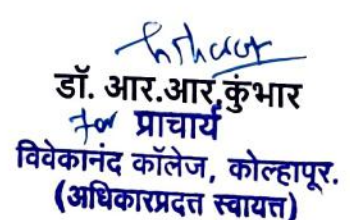 डॉ. आर.आर.कुंभार
For प्राचार्य
विवेकानंद कॉलेज, कोल्हापूर.
(अधिकारप्रदत्त स्वायत्त)